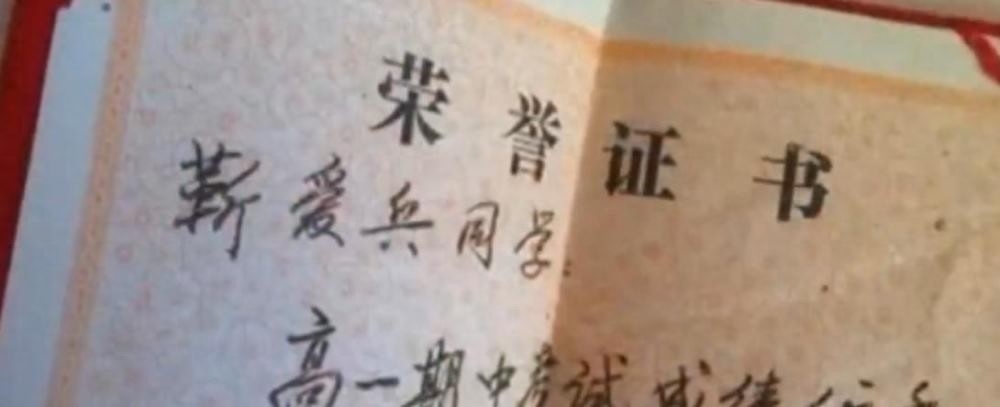 荣誉证书
靳爱兵同学:
高一期中考试成绩优